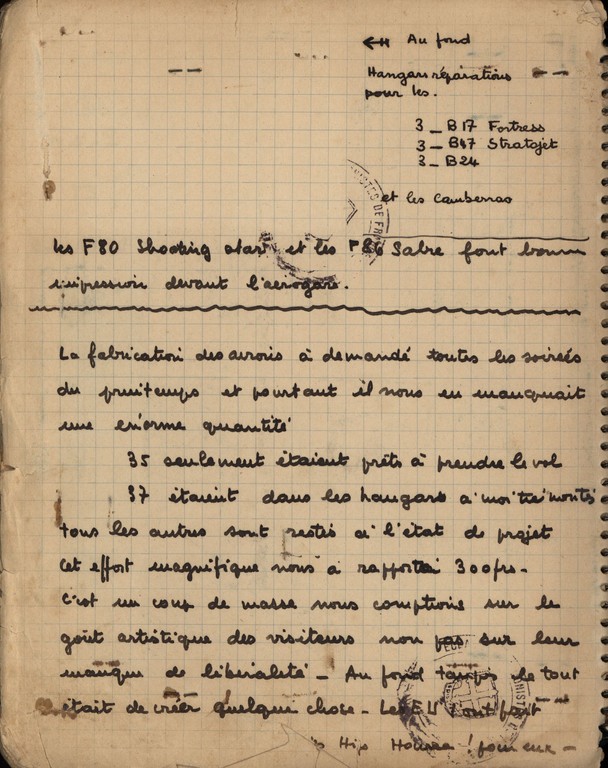 ← Au fond
Hangars réparations
pour les.
3 _ B17 Fortress
3 _ B47 Stratojet
3 _ B24
et les Camberras
les F80 Shooting star et les F86 Sabre font bonne
impression devant l'aerogare.
La fabrication des avions à demandé toutes les soireés
du printemps et pourtant il nous en manquait
une énorme quantité
35 seulement étaient prêts à prendre le vol
37 étaient dans les hangars à moitié montés
tous les autres sont restés à l'état de projet
cet effort magnifique nous à rapporté 300frs -
C'est un coup de masse nous comptions sur le
goût artistique des visiteurs non pas sur leur
manque de libéralité - Au fond le tout
était de créer quelque chose - Les font
Hip Hourra ! pour eux -